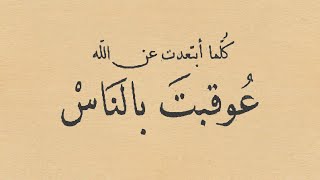 كُلّما أبتعدت عن اللّه
عُوقبتَ بالنَاسْ